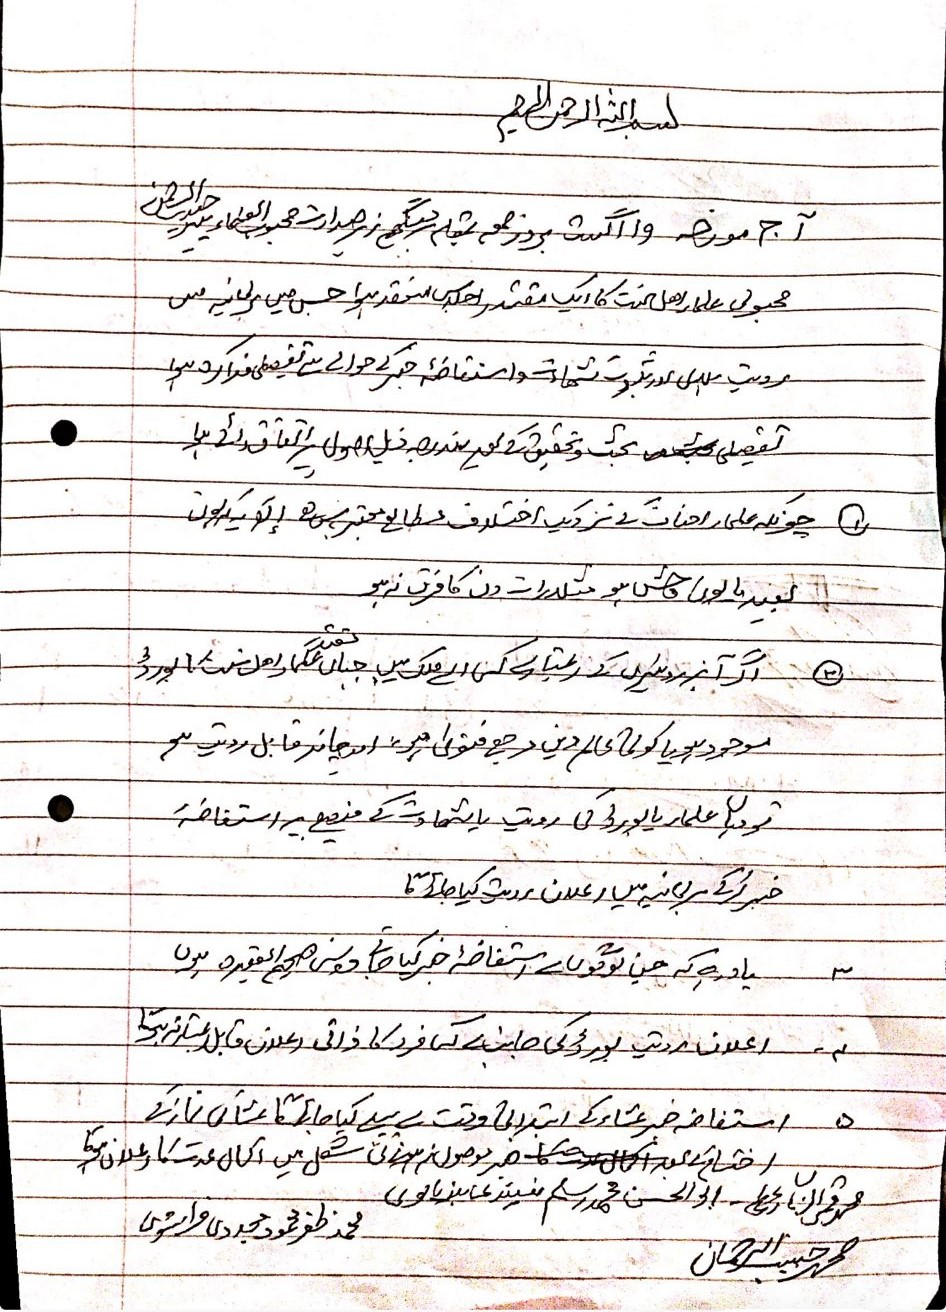 بسم اللہ الرحمن الرحیم
آج مورخہ 19 اگست بروز جمعہ بمقام برمنگھم زیر صدارت محبوب العلماء پیر حبیب الرحمن
محبوبی علماء اہل سنت کا ایک مقتدر اجلاس منعقد ہوا جس میں برطانیہ میں
رویت ہلال اور ثبوت شہادت و استفاضۂ خبر کے حوالے سے تفصیلی مذاکرہ ہوا
تفصیلی بحث و تحقیق کے بعد مندرجہ ذیل اصول پر اتفاق رائے ہوا
① چونکہ علماء احناف کے نزدیک اختلاف مطالع معتبر نہیں ہے إلّا یہ کہ بون
بعید یا بون فاحش ہو مثلاً رات دن کا فرق نہ ہو
② اگر آبزرویٹری کے اعتبار سے کسی ایسے ملک میں جہاں ثقہ علماء اہل سنت کا بورڈ
موجود ہو یا کوئی عالم دین مرجع فتویٰ ہو اور چاند قابل رویت ہو
تو وہاں علماء یا بورڈ کی رویت یا شہادت کے فیصلے پر استفاضۂ
خبر کر کے برطانیہ میں اعلان رویت کیا جائے گا
۳ یاد رہے کہ جن لوگوں سے استفاضۂ خبر کیا جائے وہ سنی صحیح العقیدہ ہوں
۴۔ اعلان رویت بورڈ کی جانب سے کسی فرد کا ذاتی اعلان قابل اعتبار نہ ہو گا
۵ استفاضہ خبر عشاء کے ابتدائی وقت سے پہلے کیا جائے گا عشاء کی نماز کے
اختتام کے بعد خبر موصول نہ ہونے کی شکل میں اکمال عدت کا اعلان ہو گا
ابو الحسن محمد
محمد ظفر محمود مجددی فراشوی
محمد حبیب الرحمان